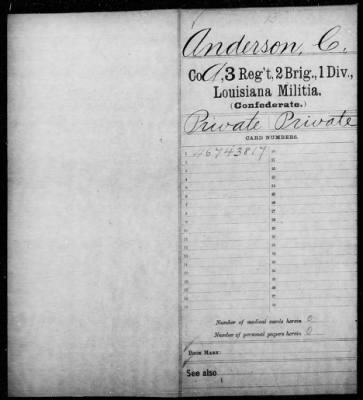 Anderson, C.
Co A, 3 Reg't, 2 Brig., 1 Div.,
Louisiana Militia.
(Confederate.)
Private Private
CARD NUMBERS.
1 46743817
Number of medical cards herein 0
Number of personal papers herein 0
BOOK MARK:
See also